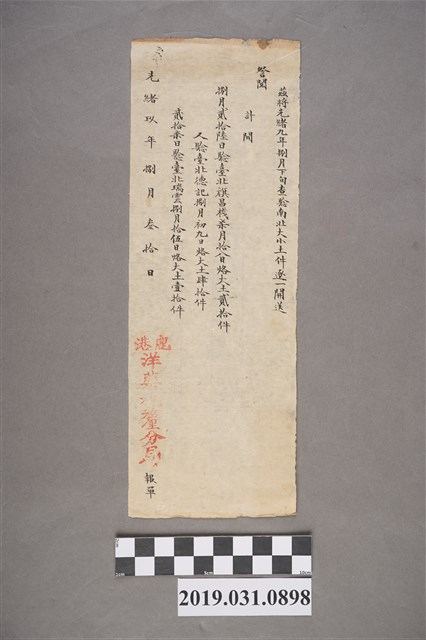 茲將光緒九年捌月下旬查驗南北大小土件逐一開送
詧閱
計開
捌月貳拾陸日驗臺北祺昌棧柒月拾八日烙大土貳拾件
又驗臺北德記捌月初九日烙大土肆拾件
貳拾柒日驗臺北瑞雲捌月拾伍日烙大土壹拾件
光緒玖年捌月叁拾日
鹿港
洋藥 釐分局
報單
2cm 5cm 10cm
2019.031.0898